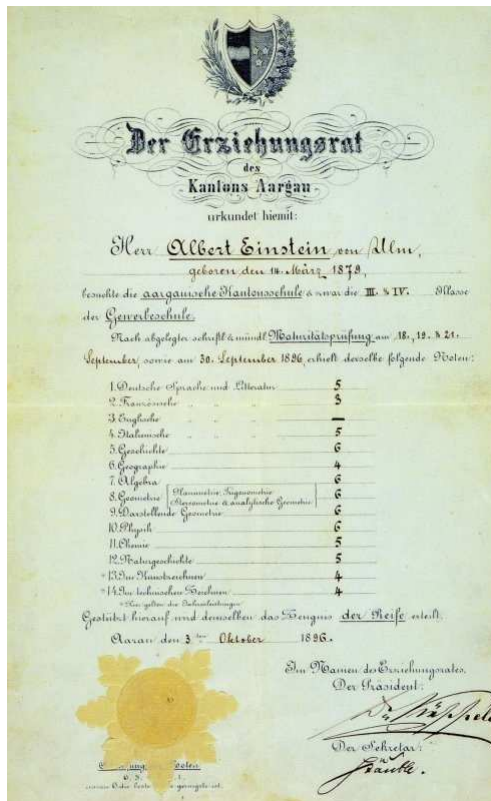 Der Erziehungsrat
des
Kantons Aargau
urkundet hiemit:
Herr Albert Einstein von Ulm,
geboren den 14. März 1879,
besuchte die aargauische Kantonsschule & zwar die III. & IV. Klasse
der Gewerbeschule.
Nach abgelegter schriftl. & mündl. Maturitätsprüfung am 18., 19. & 21.
September, sowie am 30. September 1896, erhielt derselbe folgende Noten:
1. Deutsche Sprache und Litteratur 5
2. Französische 3
3. Englische —
4. Italienische 5
5. Geschichte 6
6. Geographie 4
7. Algebra 6
8. Geometrie [Planimetrie, Trigonometrie Stereometrie & analytische Geometrie] 6
9. Darstellende Geometrie 6
10. Physik 6
11. Chemie 5
12. Naturgeschichte 5
*13. Im Kunstzeichnen 4
*14. Im technischen Zeichnen 4
*Hier gelten die Jahresleistungen
Gestützt hierauf wird demselben das Zeugnis der Reife erteilt.
Aarau den 3ten Oktober 1896.
Im Namen des Erziehungsrates.
Der Präsident:
Der Sekretär:
Noten